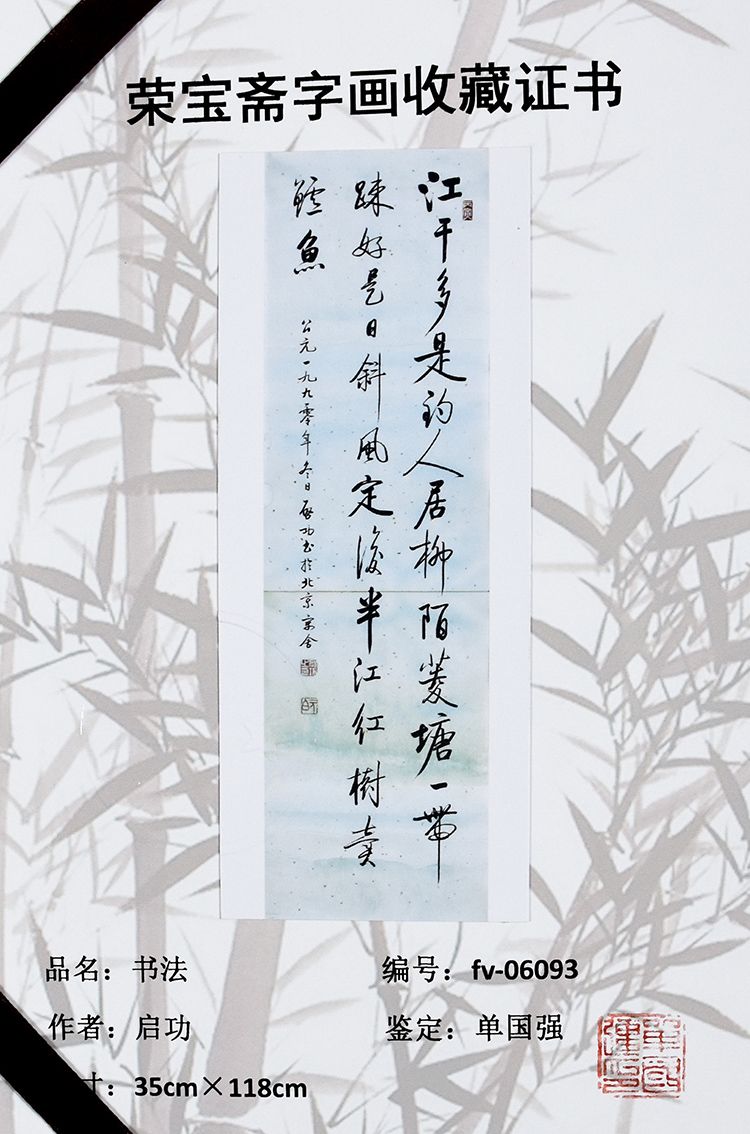 荣宝斋字画收藏证书
江干多是钓人居柳陌菱塘一带
踈好是日斜風定後半江红樹卖
鲈魚
公元一九九零年冬日启功书於北京京舍
品名：书法
编号：fv-06093
作者：启功
鉴定：单国强
寸：35cm×118cm